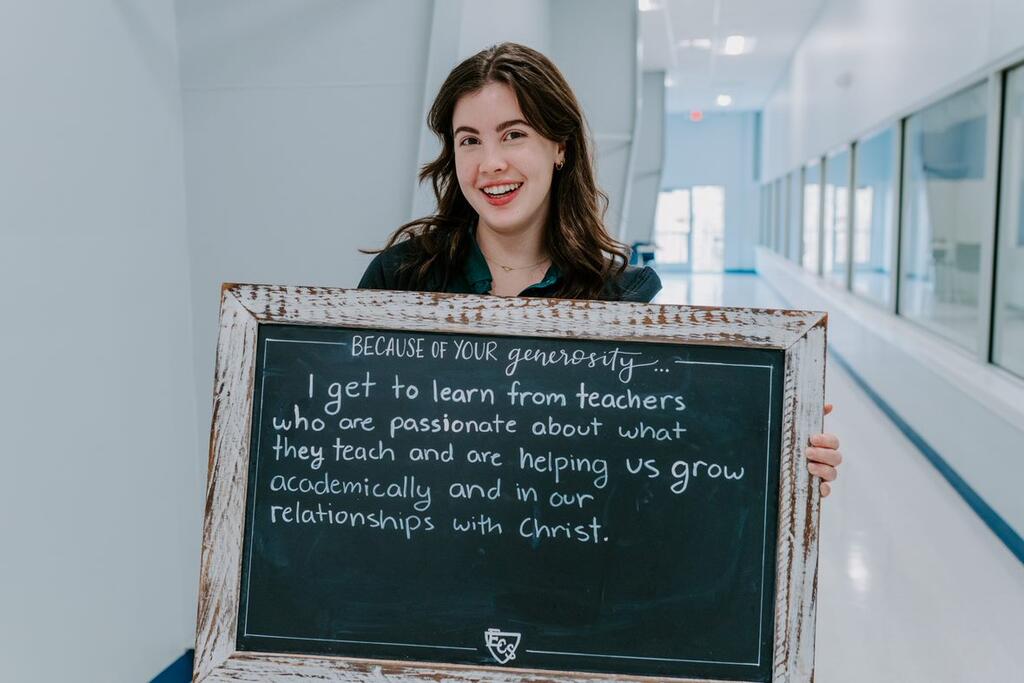 BECAUSE OF YOUR generosity...
I get to learn from teachers
who are passionate about what
they teach and are helping us grow
academically and in our
relationships with Christ.
ECS